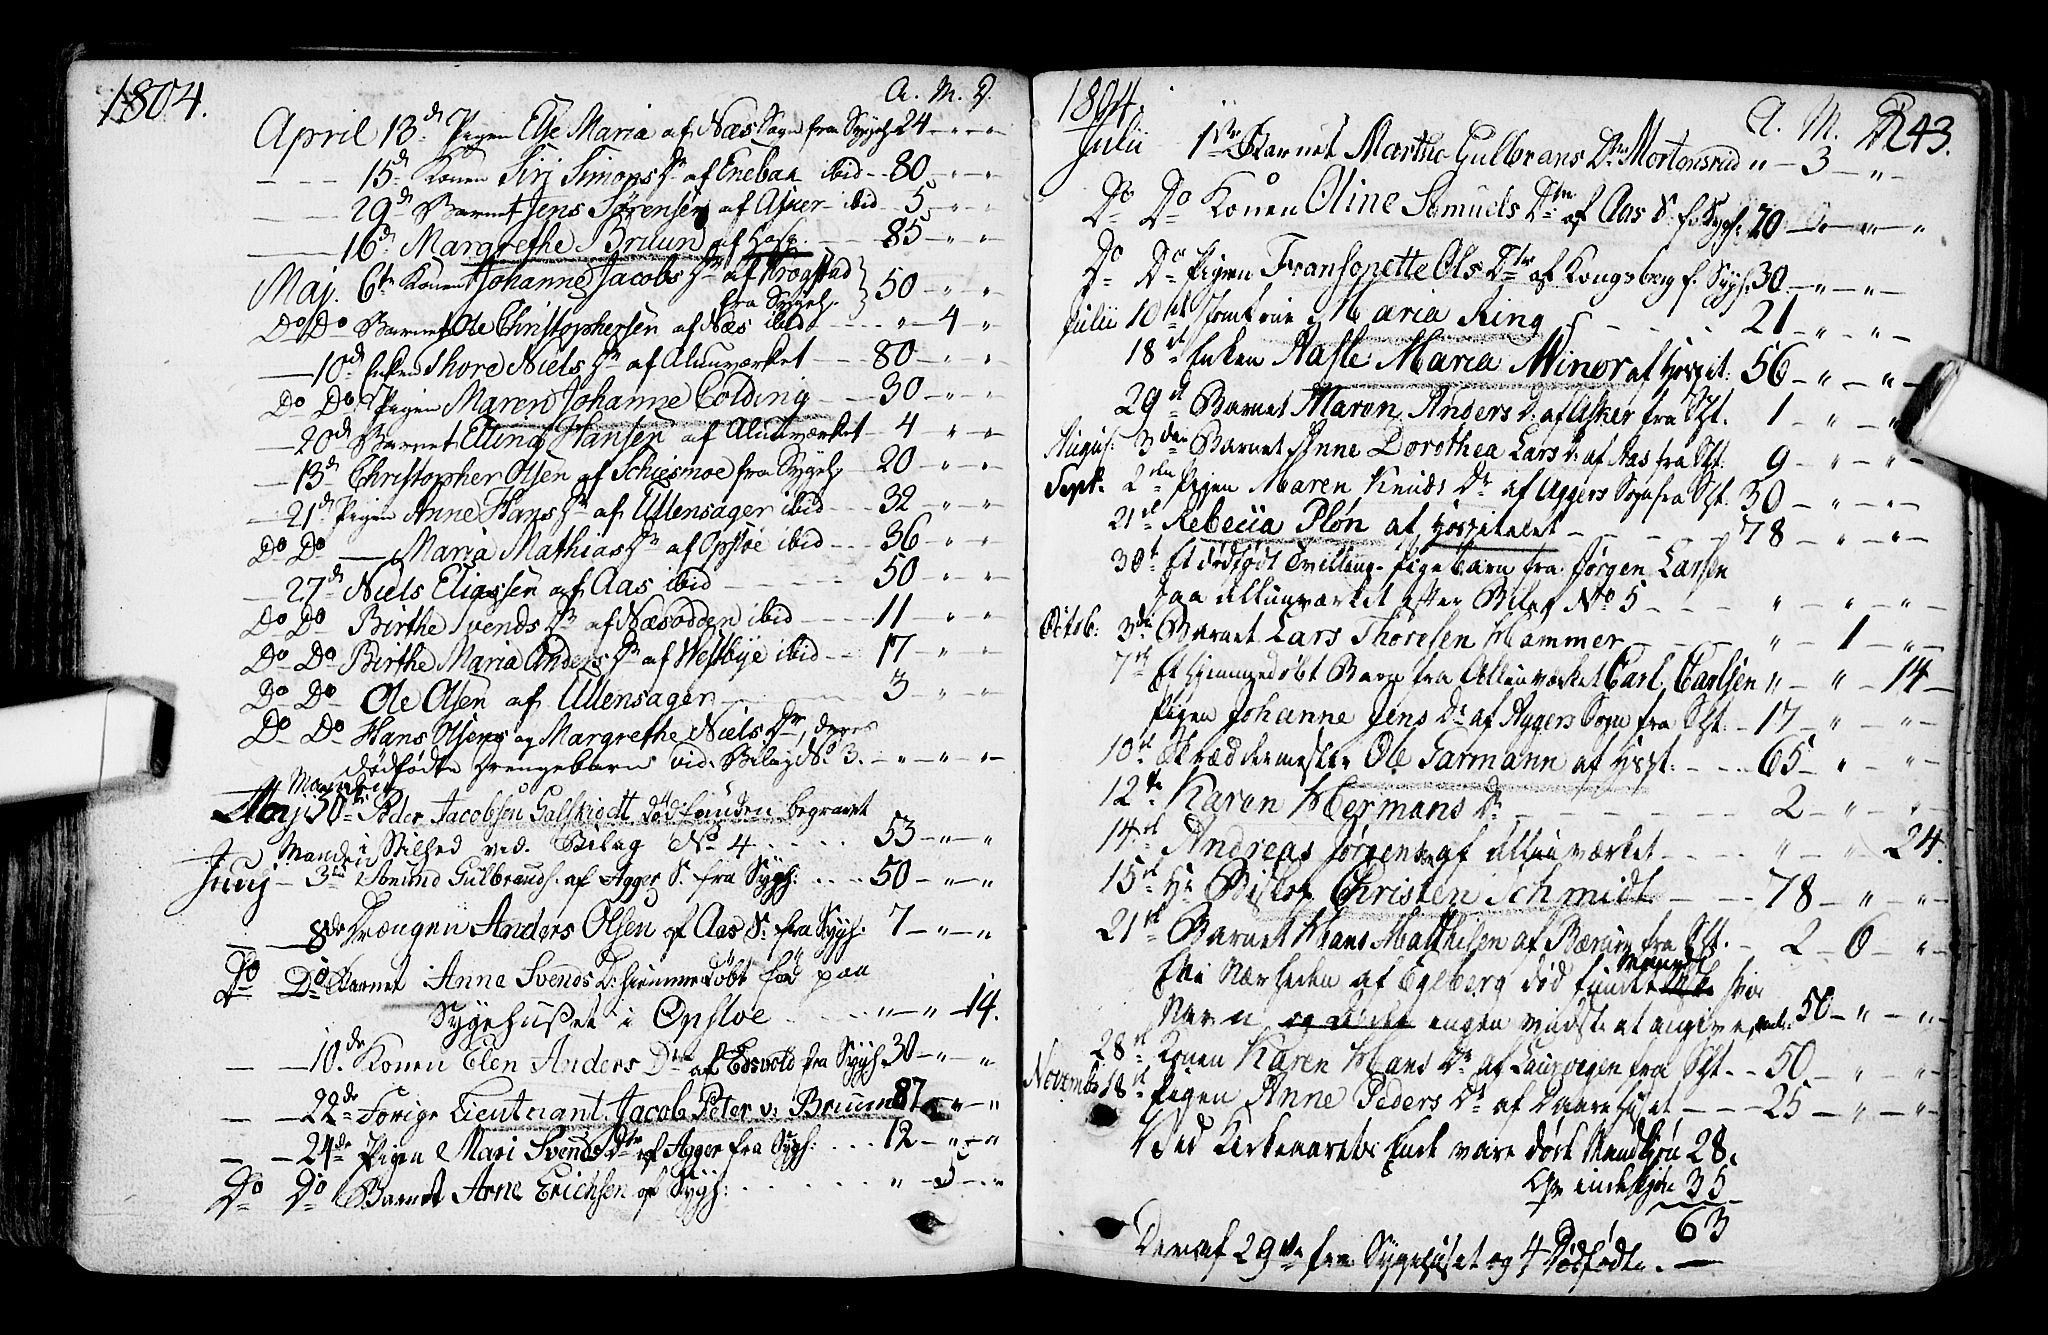 1804.
A. M. D.
April 13de Pigen Else Maria af Næs Sogn fra Sygeh 24 – " – "
– – – 15de Konen Siri Simons Dr af Enebak ibid – 80 – " – "
29de Barnet Jens Sørensen af Asker ibid – 5 – " – "
16de Margrethe Bruun af Hosp. – – 85 – " – "
Maj. 6te Konen Johanne Jacobs Dr af Krogstad
fra Sygeh. 50 – " – "
Do Do Barnet Ole Christophersen af Næs ibid – " – 4 – "
10de Enken Thore Niels Dr af Alunværket – – 80 – " – "
Do Do Pigen Maren Johanne Colding – – 30 – " – "
20de Barnet Elling Hansen af Alunværket – 4 – " – "
13de Christopher Olsen af Schiesmoe fra Sygeh 20 – " – "
21de Pigen Anne Hans Dr af Ullensager ibid – 32 – " – "
Do Do – Maria Mathias Dr af Opsloe ibid – – 36 – " – "
27de Niels Eliassen af Aas ibid – – 50 – " – "
Do Do Birthe Svends Dr af Næsodden ibid – – 11 – " – "
Do Do Birthe Maria Anders Dr af Westbye ibid – – 17 – " – "
Do Do Ole Olsen af Ullensager – – 3 – " – "
Do Do Hans Olsens og Margrethe Niels Dr, deres
dødfødte Drengebarn vid. Bilag No 3. – " – " – "
Manden
Maj 30te Peder Jacobsen Galskiødt, død funden begravet
i Stilhed ved. Bilag No 4 . . . . 53 – " – "
Manden
Junj – 3die Amund Gulbrands. af Agger S. fra Sygh: . . . . 50 – " – "
8de Drengen Anders Olsen af Aas S. fra Sygh. 7 – " – "
Do Do Barnet Anne Svends D. hiemmedøbt fød paa
Sygehuset i Opsloe . . . " – " – 14.
10de Konen Elen Anders Dr af Edsvold fra Sygh. 30 – " – "
22de Forige Lieutnant Jacob Peter v: Bruun 87 – " – "
24de Pigen Mari Svends Dtr af Agger fra Sygh: . . . 12 – " – "
Do Do Barnet Arne Erichsen af Sygh: . . . . . . " – 5 – "
1804.
A. M. D. 43.
Julii 1ste Barnet Marthe Gulbrans Dtr Mortensrud " – 3 – "
Do Do Konen Oline Samuels Dtr af Aas S. f. Sygh: 70 – " – "
Do Do Pigen Fransonette Ols Dtr af Kongsberg f. Sygh. 30 – " – "
Julii 10de Jomfrue Maria Ring – – – – 21 – " – "
18de Enken Aasle Maria Minor af Hospit: 56 – " – "
29de Barnet Maren Anders D. af Asker fra Szt. 1 – " – "
August. 3die Barnet Anne Dorothea Lars D. af Aas fra Szt: 9 – " – "
Sept. 2den Pigen Maren Knuds Dr af Aggers Sogn fra Szt. 30 – " – "
21de Rebecca Pløn af Hospitalet – – – – 78 – " – "
30te Et dødfødt Tvilling-Pigebarn fra Jørgen Larsen
paa Allunværket efter Bilag No 5 – – – " – " – "
Octob: 3die Barnet Lars Thoresen Hammer – – – – " – 1 – "
7de Et hiemmedøbt Barn fra Allunværket Carl Carlsen " – " – 14 –
Pigen Johanne Jens Dr af Aggers Sogn fra Szt – 17 – " – "
10de Skræddermester Ole Tarmann af Hszt. – – 65 – " – "
12te Karen Hermans Dr – – – – 2 – " – "
14de Andreas Jørgens. af Allunværket – – – – " – " 24.
15de Hr Biskop Christen Schmidt – – – 78 – " – "
21de Barnet Hans Mathisen af Bærum fra Szt. – 2 – 6 – "
En i Nærheden af Egeberg død funden Mand
Navn og engen vidste at angive, 50 – " – "
28de Konen Karen Hans Dr af Laurvigen fra Szt – 50 – " – "
Novembr 18de Pigen Anne Peders Dr af Daarehuset – – – 25 – " – "
Ved Kirkeaarets Ende vare døde Mandkjøn 28.
Qvindekjøn 35
63
Deraf 29 fra Sygehuset og 4 Dødfødte. –